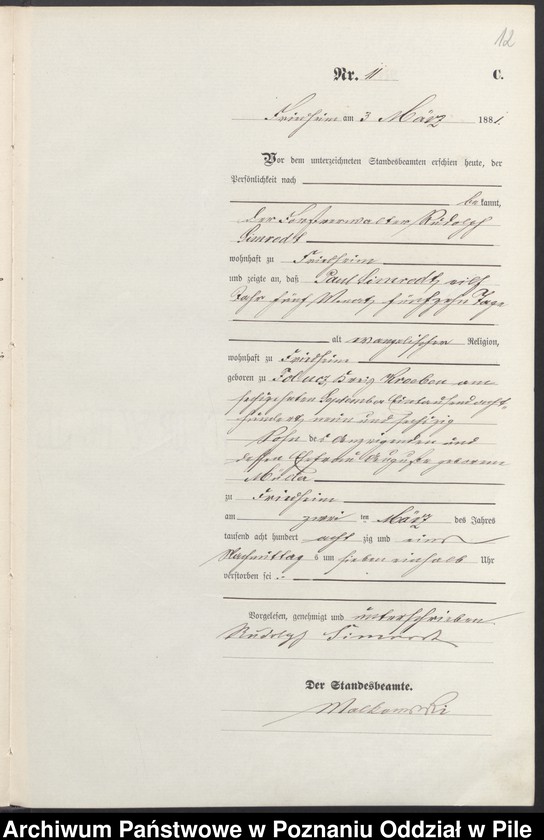 12
Nr. 11 C.
Friedheim am 3 März 1881.
Vor dem unterzeichneten Standesbeamten erschien heute, der
Persönlichkeit nach
bekannt,
der Forstverwalter Rudolph
Simrodt
wohnhaft zu Friedheim
und zeigte an, daß Paul Simrodt, elf
Jahr fünf Monat fünfzehn Tage
alt evangelischer Religion,
wohnhaft zu Friedheim
geboren zu Kreis Kroeben am
sechszehnten September Eintausend acht-
hundert neun und sechszig
Sohn des Anzeigenden und
dessen Ehefrau Auguste geborene
Milda
zu Friedheim
am zwei ten März des Jahres
tausend acht hundert acht zig und eins
Nachmittags um sieben einhalb Uhr
verstorben sei.
Vorgelesen, genehmigt und unterschrieben
Rudolph Simrodt
Der Standesbeamte.
Malkowski
Archiwum Państwowe w Poznaniu Oddział w Pile